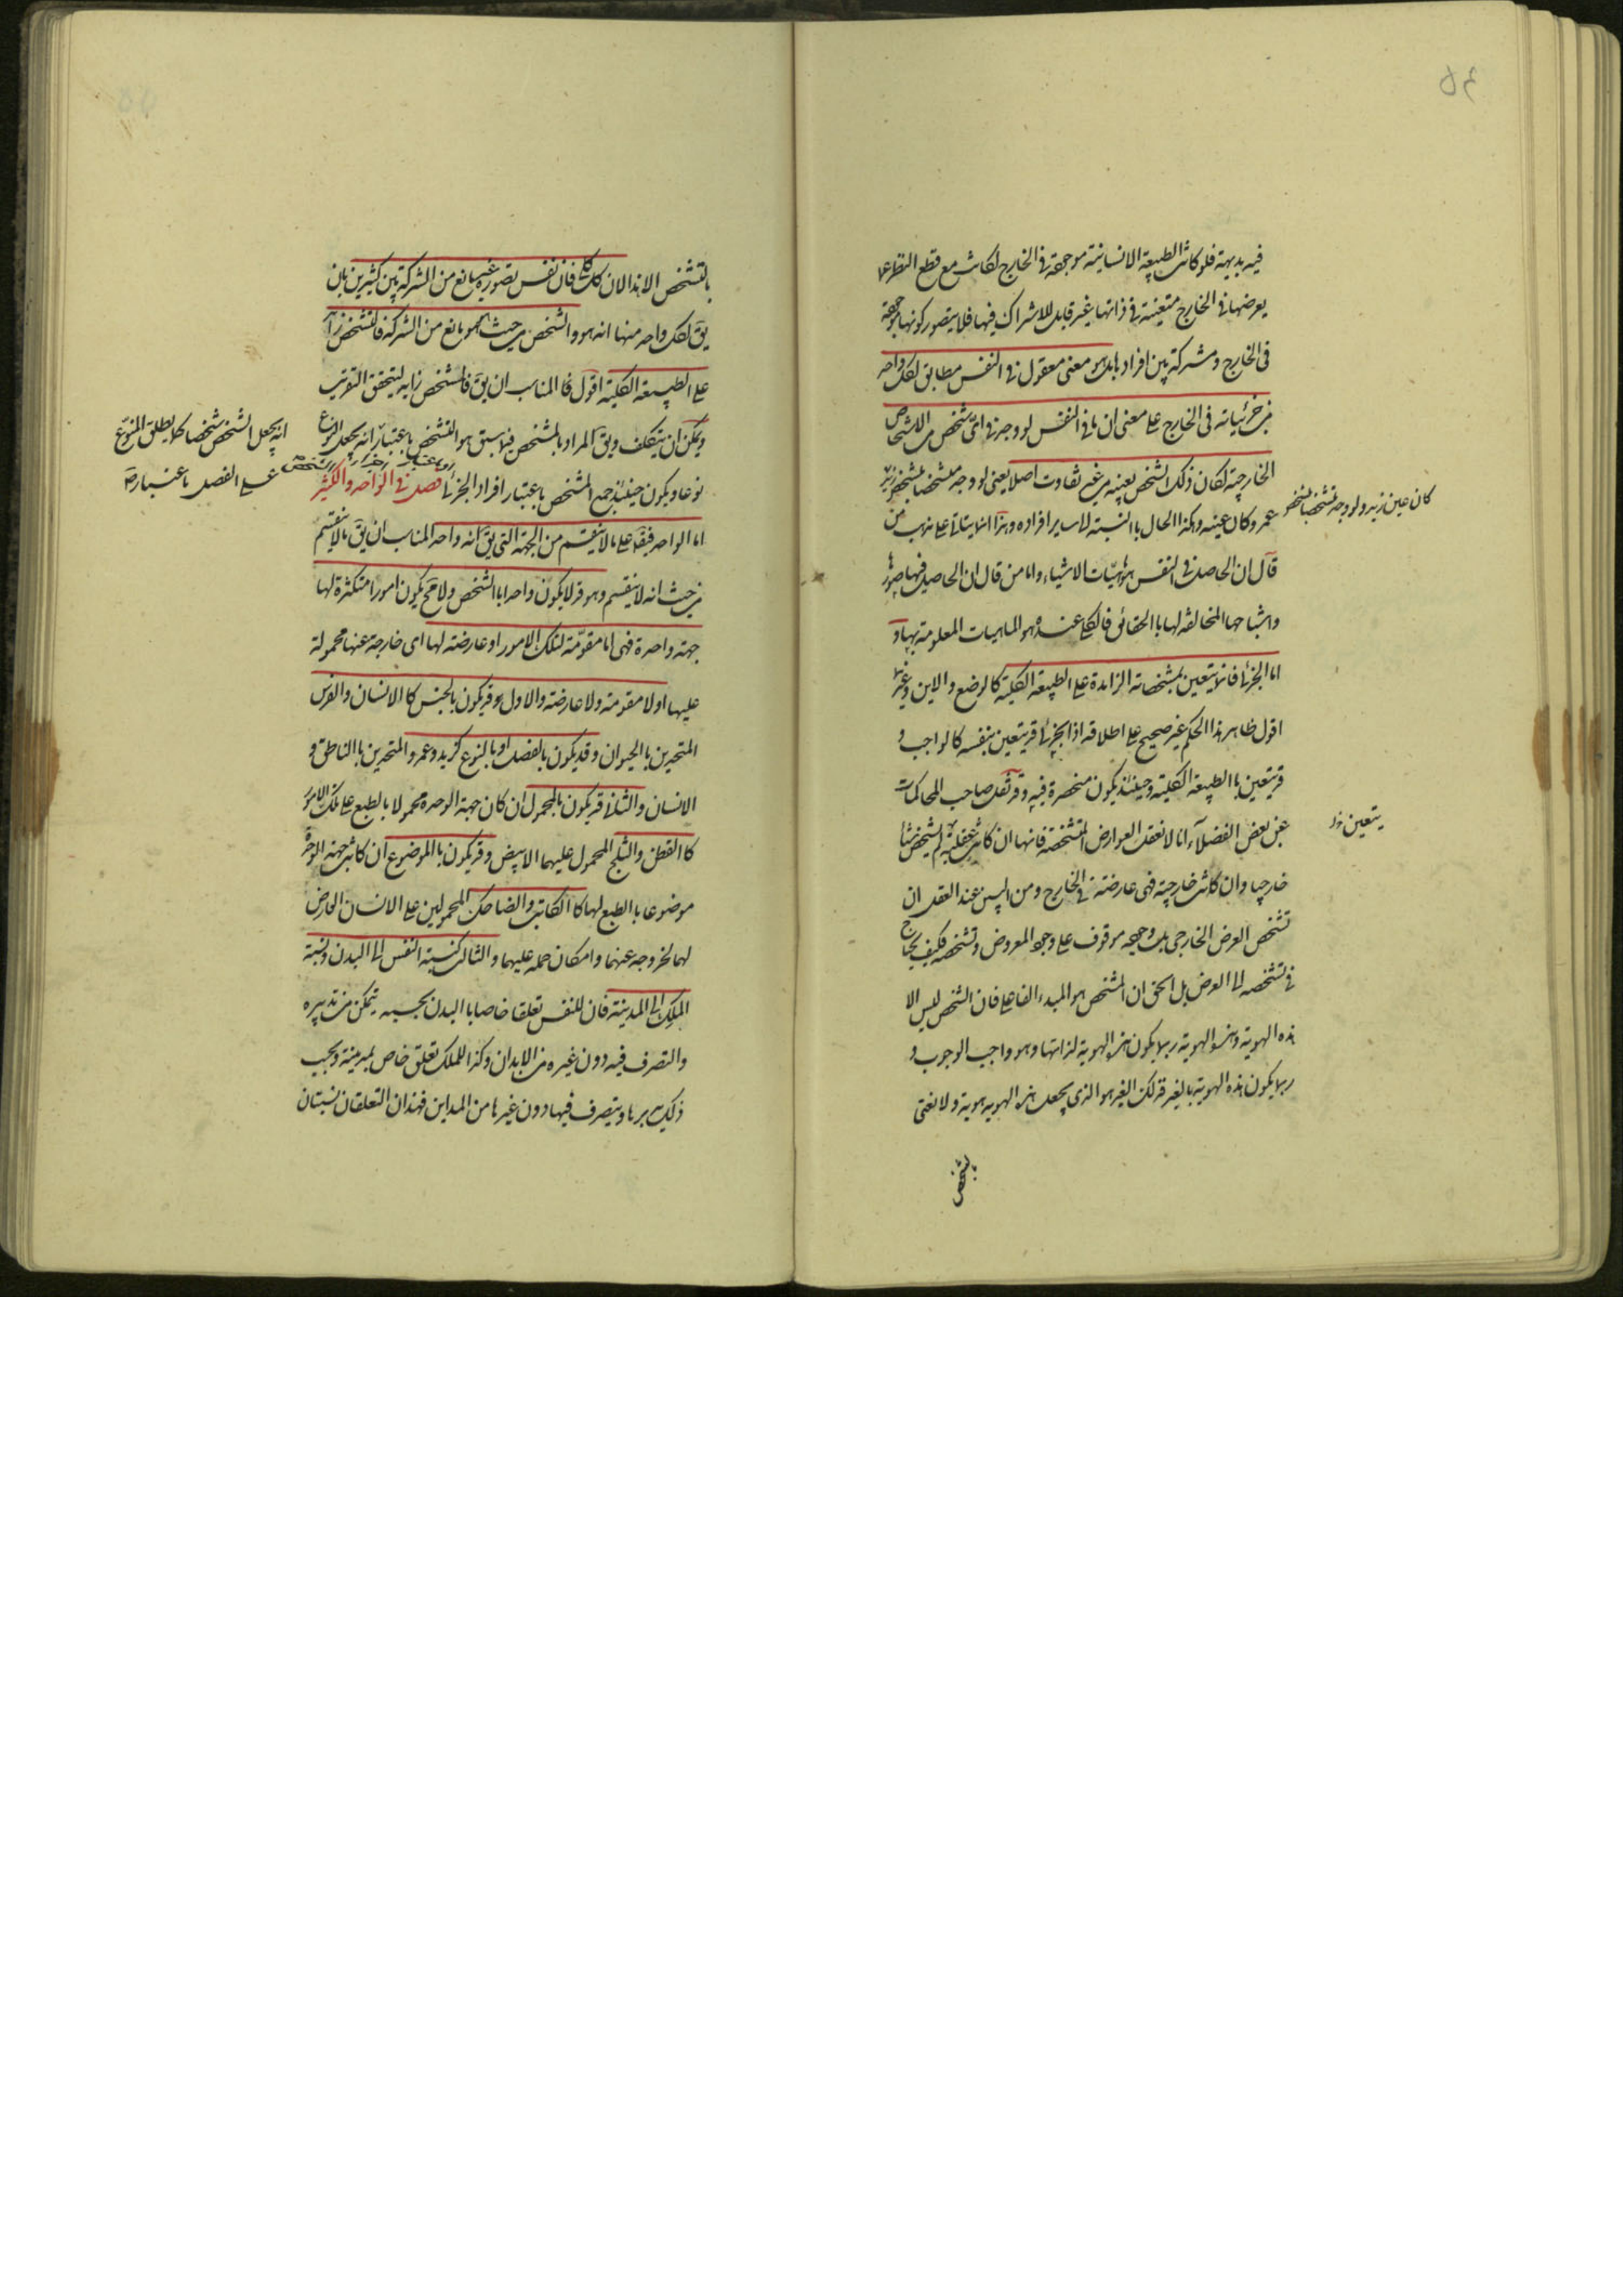 فيه بديهة فلو كانت الطبيعة الانسانية موجودة فى الخارج لكانت مع قطع النظر عما
يعرضها فى الخارج متعينة فى ذاتها غير قابلة للاشراك فيها فلا يتصور كونها موجودة
فى الخارج ومشتركة بين افرادها بل هو معنى معقول فى النفس مطابق لكل واحد
من جزئياته فى الخارج على معنى ان ما فى النفس لو وجد فى اى شخص من الاشخاص
الخارجية لكان ذلك الشخص بعينه من غير تفاوت اصلا يعنى لو وجد متشخصا بتشخص زيد
كان عين زيد ولو وجد متشخصا بتشخص
عمرو كان عينه وهكذا الحال باالنسبة الى ساير افراده وهذا انما يتاتى على مذهب من
قال ان الحاصل فى النفس هو ماهيّات الاشياء واما من قال ان الحاصل فيها صورها
واشباحها المخالفة لها باالحقائق فالكلى عنده هو الماهيات المعلومة بها و
اما الجزئى فانما يتعين بمشخصاته الزايدة على الطبيعة الكلية كالوضع والاين وغيرها
اقول ظاهر هذا الحكم غير صحيح على اطلاقه اذ الجزئى قد يتعين بنفسه كالواجب و
قد يتعين باالطبيعة الكلية وحينئذ يكون منحصرة فيه وقد نقل صاحب المحاكمات
عن بعض الفضلآء انا لا نعقل العوارض المشخصة فانها ان كانت عقلية لم يتشخص شئا
يتعين
خارجيا وان كانت خارجية فهى عارضة فى الخارج ومن البين عند العقل ان
تشخص العرض الخارجى بل وجوده موقوف على وجود المعروض وتشخصه فكيف يحتاج
فى تشخصه الى العرض بل الحق ان المشخص هو المبدء الفاعلى فان الشخص ليس الا
هذه الهوية وهذه الهوية ربما يكون هذه الهوية لذاتها وهو واجب الوجوب و
ربما يكون هذه الهوية بالغير فذلك الغير هو الذى يجعل هذه الهويه هوية ولا نعنى
بالتشخص
بالتشخص الا هذا لان كل فان نفس تصوره غير مانع من الشركة بين كثيرين بان
يق لكل واحد منها انه هو والشخص من حيث هو مانع من الشركة فالتشخص زائد
على الطبيعة الكلية اقول فا المناسب ان يق فالمشخص زايد ليتحقق التقريب
ويمكن ان يتكلف ويق المراد بالمشخص فيما سبق هو التشخص باعتبار انه يجعل النوع
انه يجعل الشخص شخصا كما يطلق المنوّع
على الفصل باعتبار
نوعا ويكون حينئذ جمع المشخص باعتبار افراد الجزئى فصل فى الواحد والكثير
اما الواحد فيق على ما لا ينقسم من الجهة التى يق انه واحد المناسب ان يق ما لا ينقسم
من حيث انه لا ينقسم وهو قد لا يكون واحدا باالشخص ولا مح يكون امورا متكثرة لها
جهة واحدة فهى اما مقوّمة لتلك الامور او عارضة لها اى خارجة عنها محمولة
عليها او لا مقومة ولا عارضة والاول وقد يكون بالجنس كا الانسان والفرس
المتحدين باالحيوان وقد يكون بالفصل او بالنوع كزيد وعمرو المتحدين باالناطق و
الانسان والثانى قد يكون بالمحمول ان كان جهة الوحدة محمولا بالطبع على تلك الامور
كا القطن والثلج المحمول عليهما الابيض وقد يكون باالموضوع ان كانت جهة الوحدة
موضوعا باالطبع لها كا الكاتب والضاحك المحمولين على الانسان العارض
لهما لخروجه عنهما وامكان حمله عليهما والثالث كنسبة النفس الى البدن ونسبة
الملك الى المدينة فان للنفس تعلقا خاصا باالبدن بحسبه يتمكن من تدبيره
والتصرف فيه دون غيره من الابدان وكذا للملك تعلق خاص بمدينة وبحسب
ذلك يدبرها ويتصرف فيها دون غيرها من المداين فهذان التعلقان نسبتان